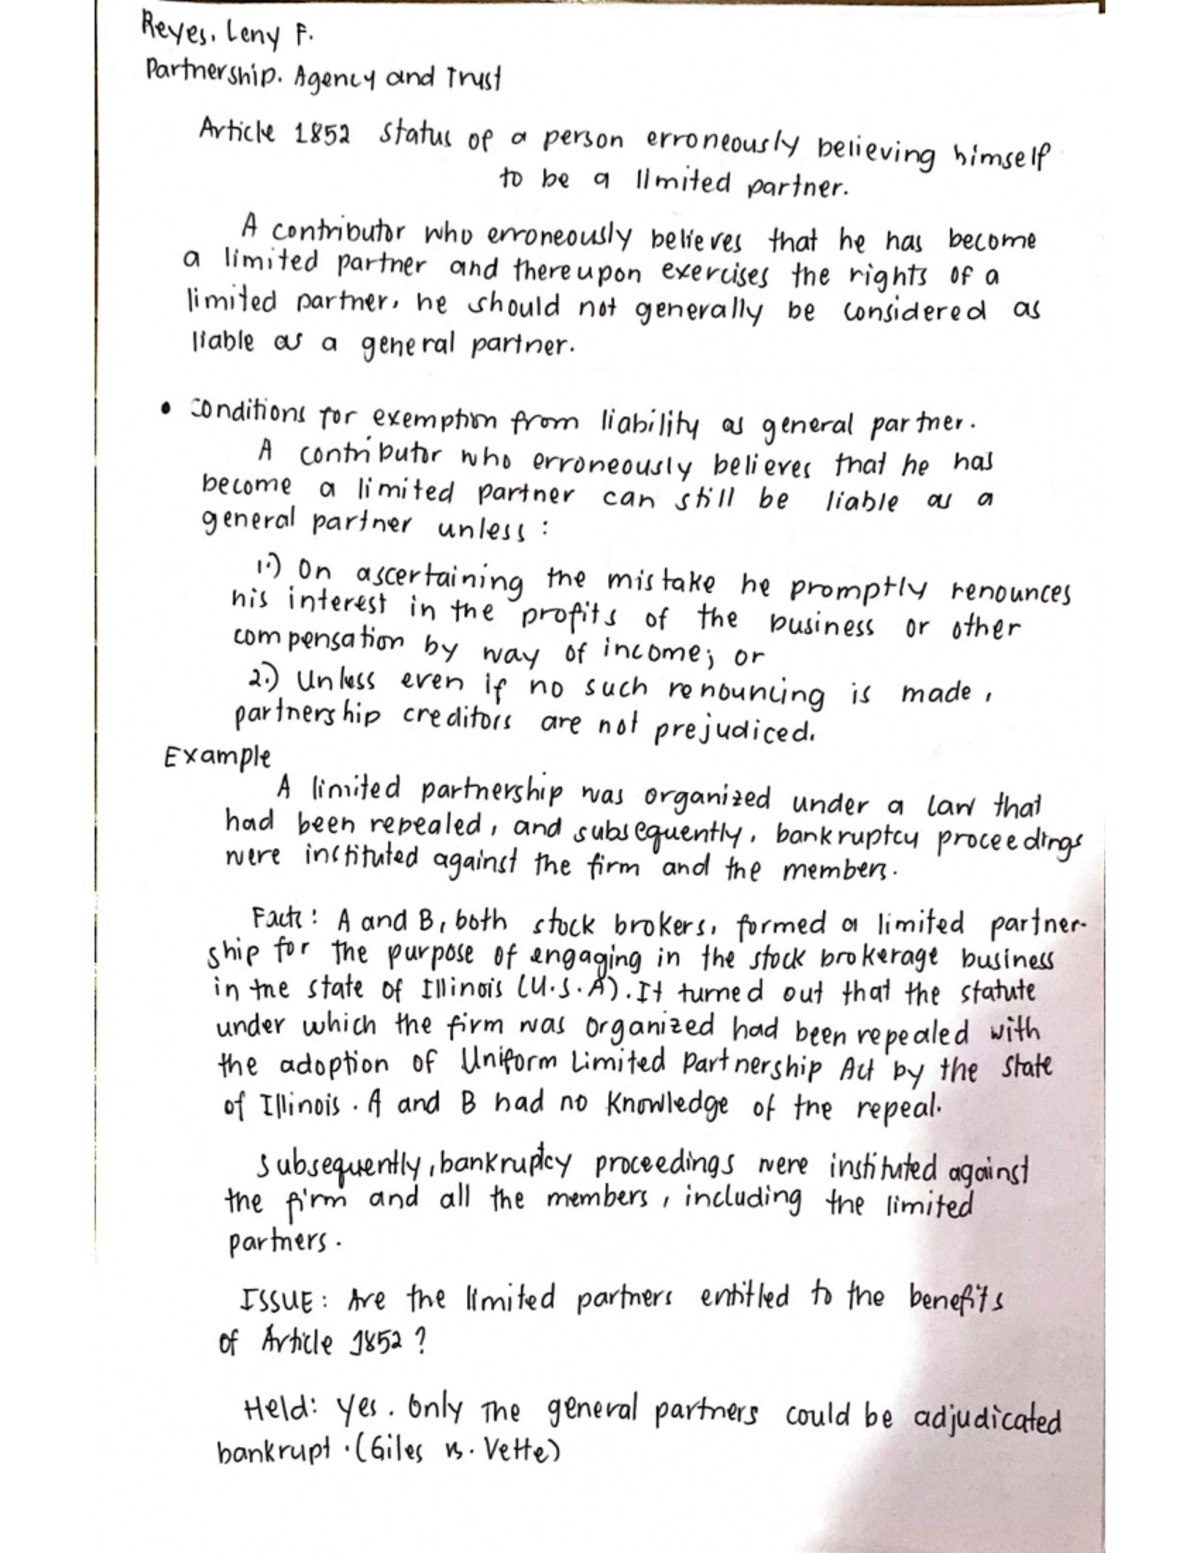 Reyes, Leny F.
Partnership, Agency and Trust
Article 1852 Status of a person erroneously believing himself
to be a limited partner.
A contributor who erroneously believes that he has become
a limited partner and thereupon exercises the rights of a
limited partner, he should not generally be considered as
liable as a general partner.
• Conditions for exemption from liability as general partner.
A contributor who erroneously believes that he has
become a limited partner can still be liable as a
general partner unless :
1.) On ascertaining the mistake he promptly renounces
his interest in the profits of the business or other
compensation by way of income; or
2.) Unless even if no such renouncing is made,
partnership creditors are not prejudiced.
Example
A limited partnership was organized under a law that
had been repealed, and subsequently, bankruptcy proceedings
were instituted against the firm and the members.
Facts: A and B, both stock brokers, formed a limited partner-
ship for the purpose of engaging in the stock brokerage business
in the state of Illinois (U.S.A). It turned out that the statute
under which the firm was organized had been repealed with
the adoption of Uniform Limited Partnership Act by the State
of Illinois. A and B had no knowledge of the repeal.
Subsequently, bankruptcy proceedings were instituted against
the firm and all the members, including the limited
partners.
ISSUE: Are the limited partners entitled to the benefits
of Article 1852?
Held: Yes. Only The general partners could be adjudicated
bankrupt. (Giles vs. Vette)